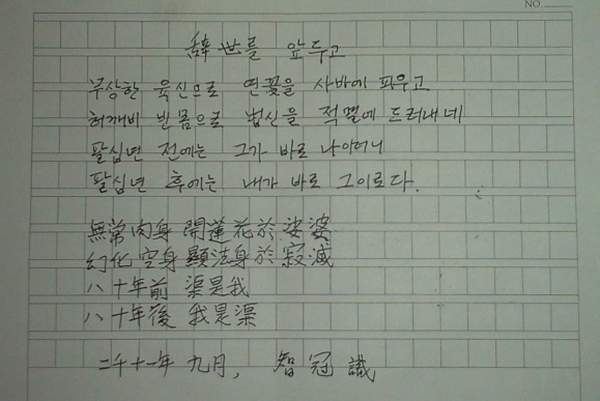 NO
辭世를 앞두고
무상한 육신으로 연꽃을 사바에 피우고
허깨비 빈몸으로 법신을 적멸에 드러내네
팔십년 전에는 그가 바로 나이더니
팔십년 후에는 내가 바로 그이로다.
無常肉身 開蓮花於娑婆
幻化空身 顯法身於寂滅
八十年前 渠是我
八十年後 我是渠
二千十一年 九月, 智冠 識